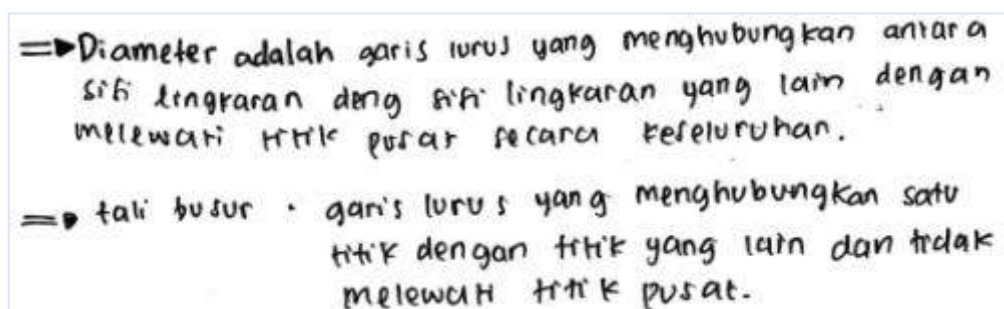 ⇒ Diameter adalah garis lurus yang menghubungkan antara
sisi lingkaran deng sisi lingkaran yang lain dengan
melewati titik pusat secara keseluruhan.
⇒ tali busur · garis lurus yang menghubungkan satu
titik dengan titik yang lain dan tidak
melewati titik pusat.